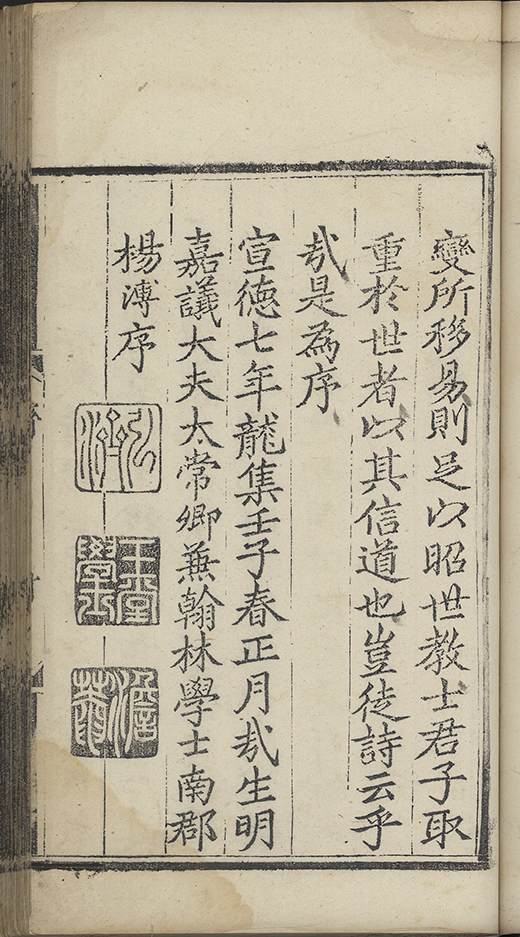 變所移易則足以昭世教士君子取
重於世者以其信道也豈徒詩云乎
㢤是為序
宣德七年龍集壬子春正月㢤生明
嘉議大夫太常卿蕪翰林學士南郡
楊溥序
弘濟
玉堂學士
澹菴